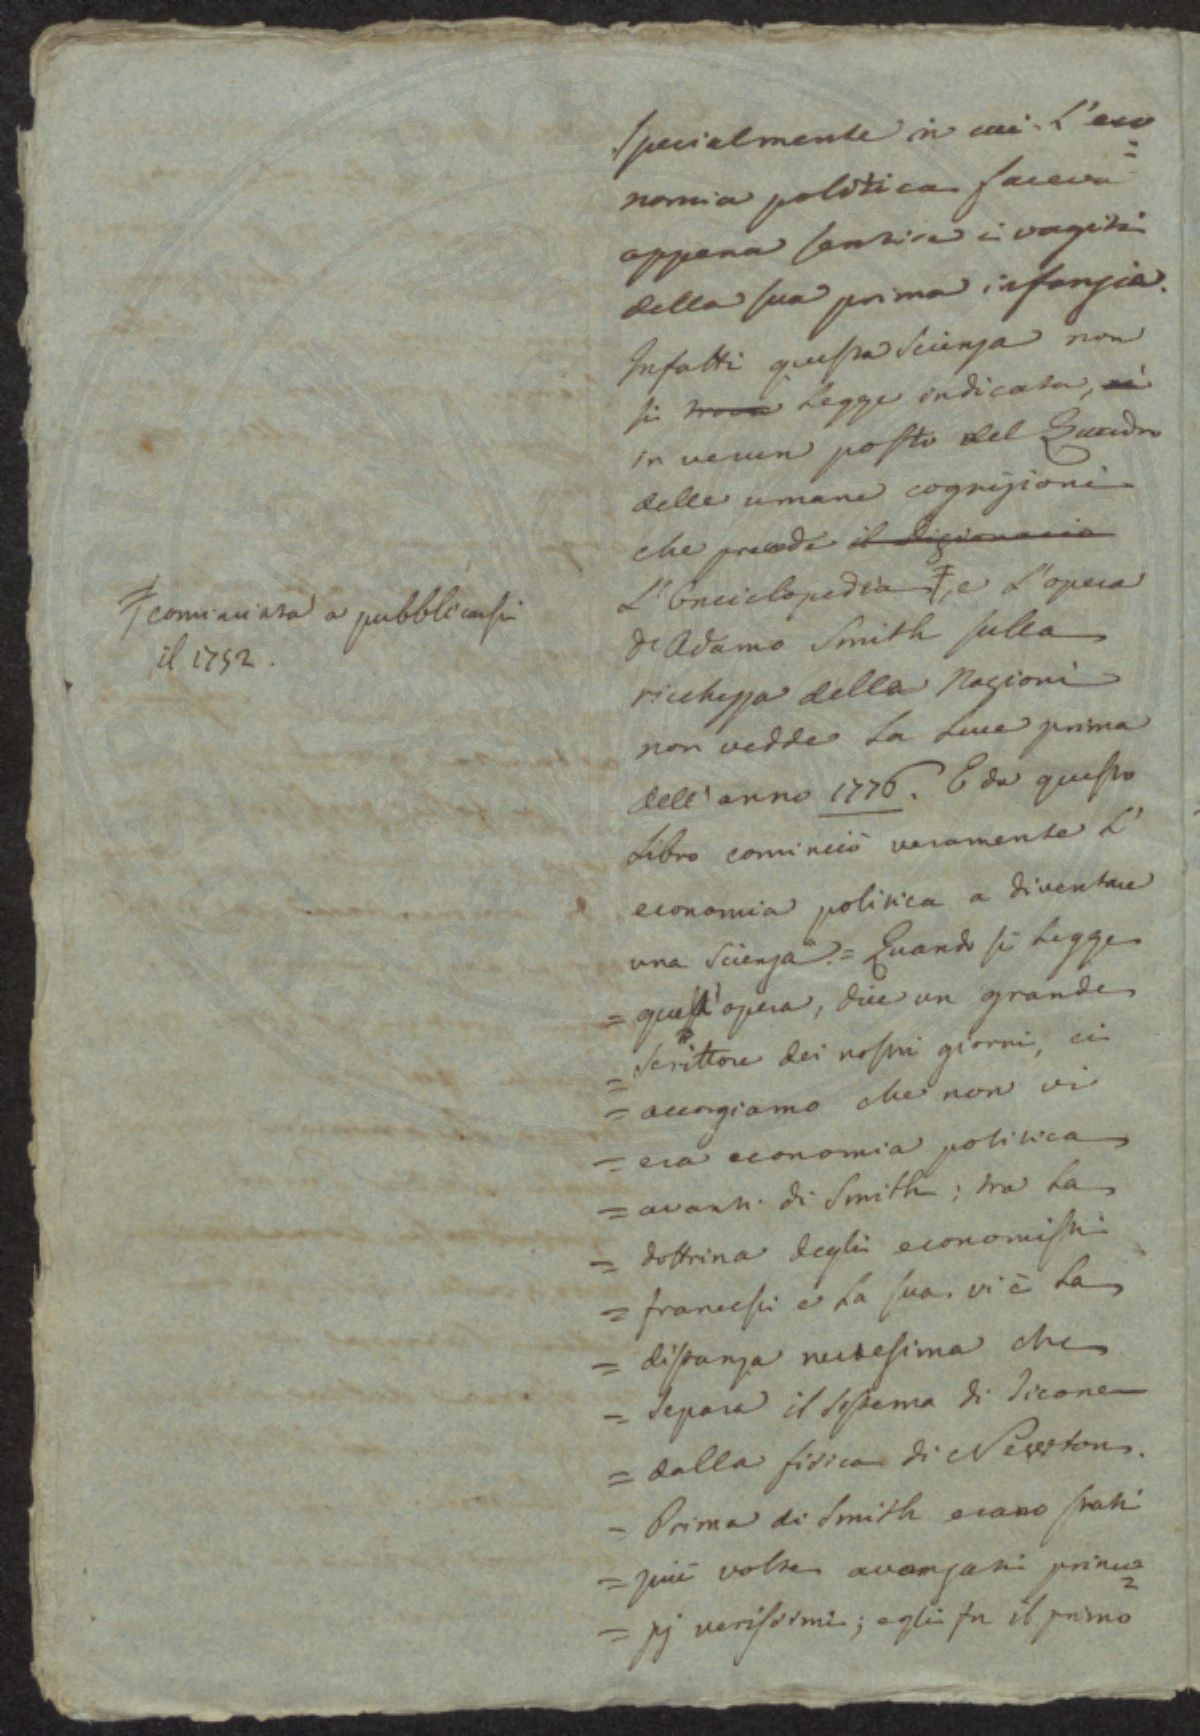 Specialmente in cui l'eco=
nomia politica faceva
appena sentire i vagiti
della sua prima infanzia.
Infatti questa Scienza non
si trova legge indicata, nè
in verun posto del Quadro
delle umane cognizioni
che precede il dizionario
L'Enciclopedia ‡, e L'opera
di Adamo Smith sulla
‡ cominciata a pubblicarsi
il 1752.
ricchezza delle Nazioni
non vedde la luce prima
dell'anno 1776. E da questo
Libro cominciò veramente l'
economia politica a diventare
una Scienza. = Quando si legge
= quest'opera, dice un grande
= Scrittore dei nostri giorni, ci
= accorgiamo che non vi
= era economia politica
= avanti di Smith; tra la
= dottrina degli economisti
= francesi e la sua vi è la
= distanza medesima che
= separa il sistema di Ticone
= dalla fisica di Newton.
= Prima di Smith erano stati
= più volte avanzati princi=
= pj verissimi; egli fu il primo